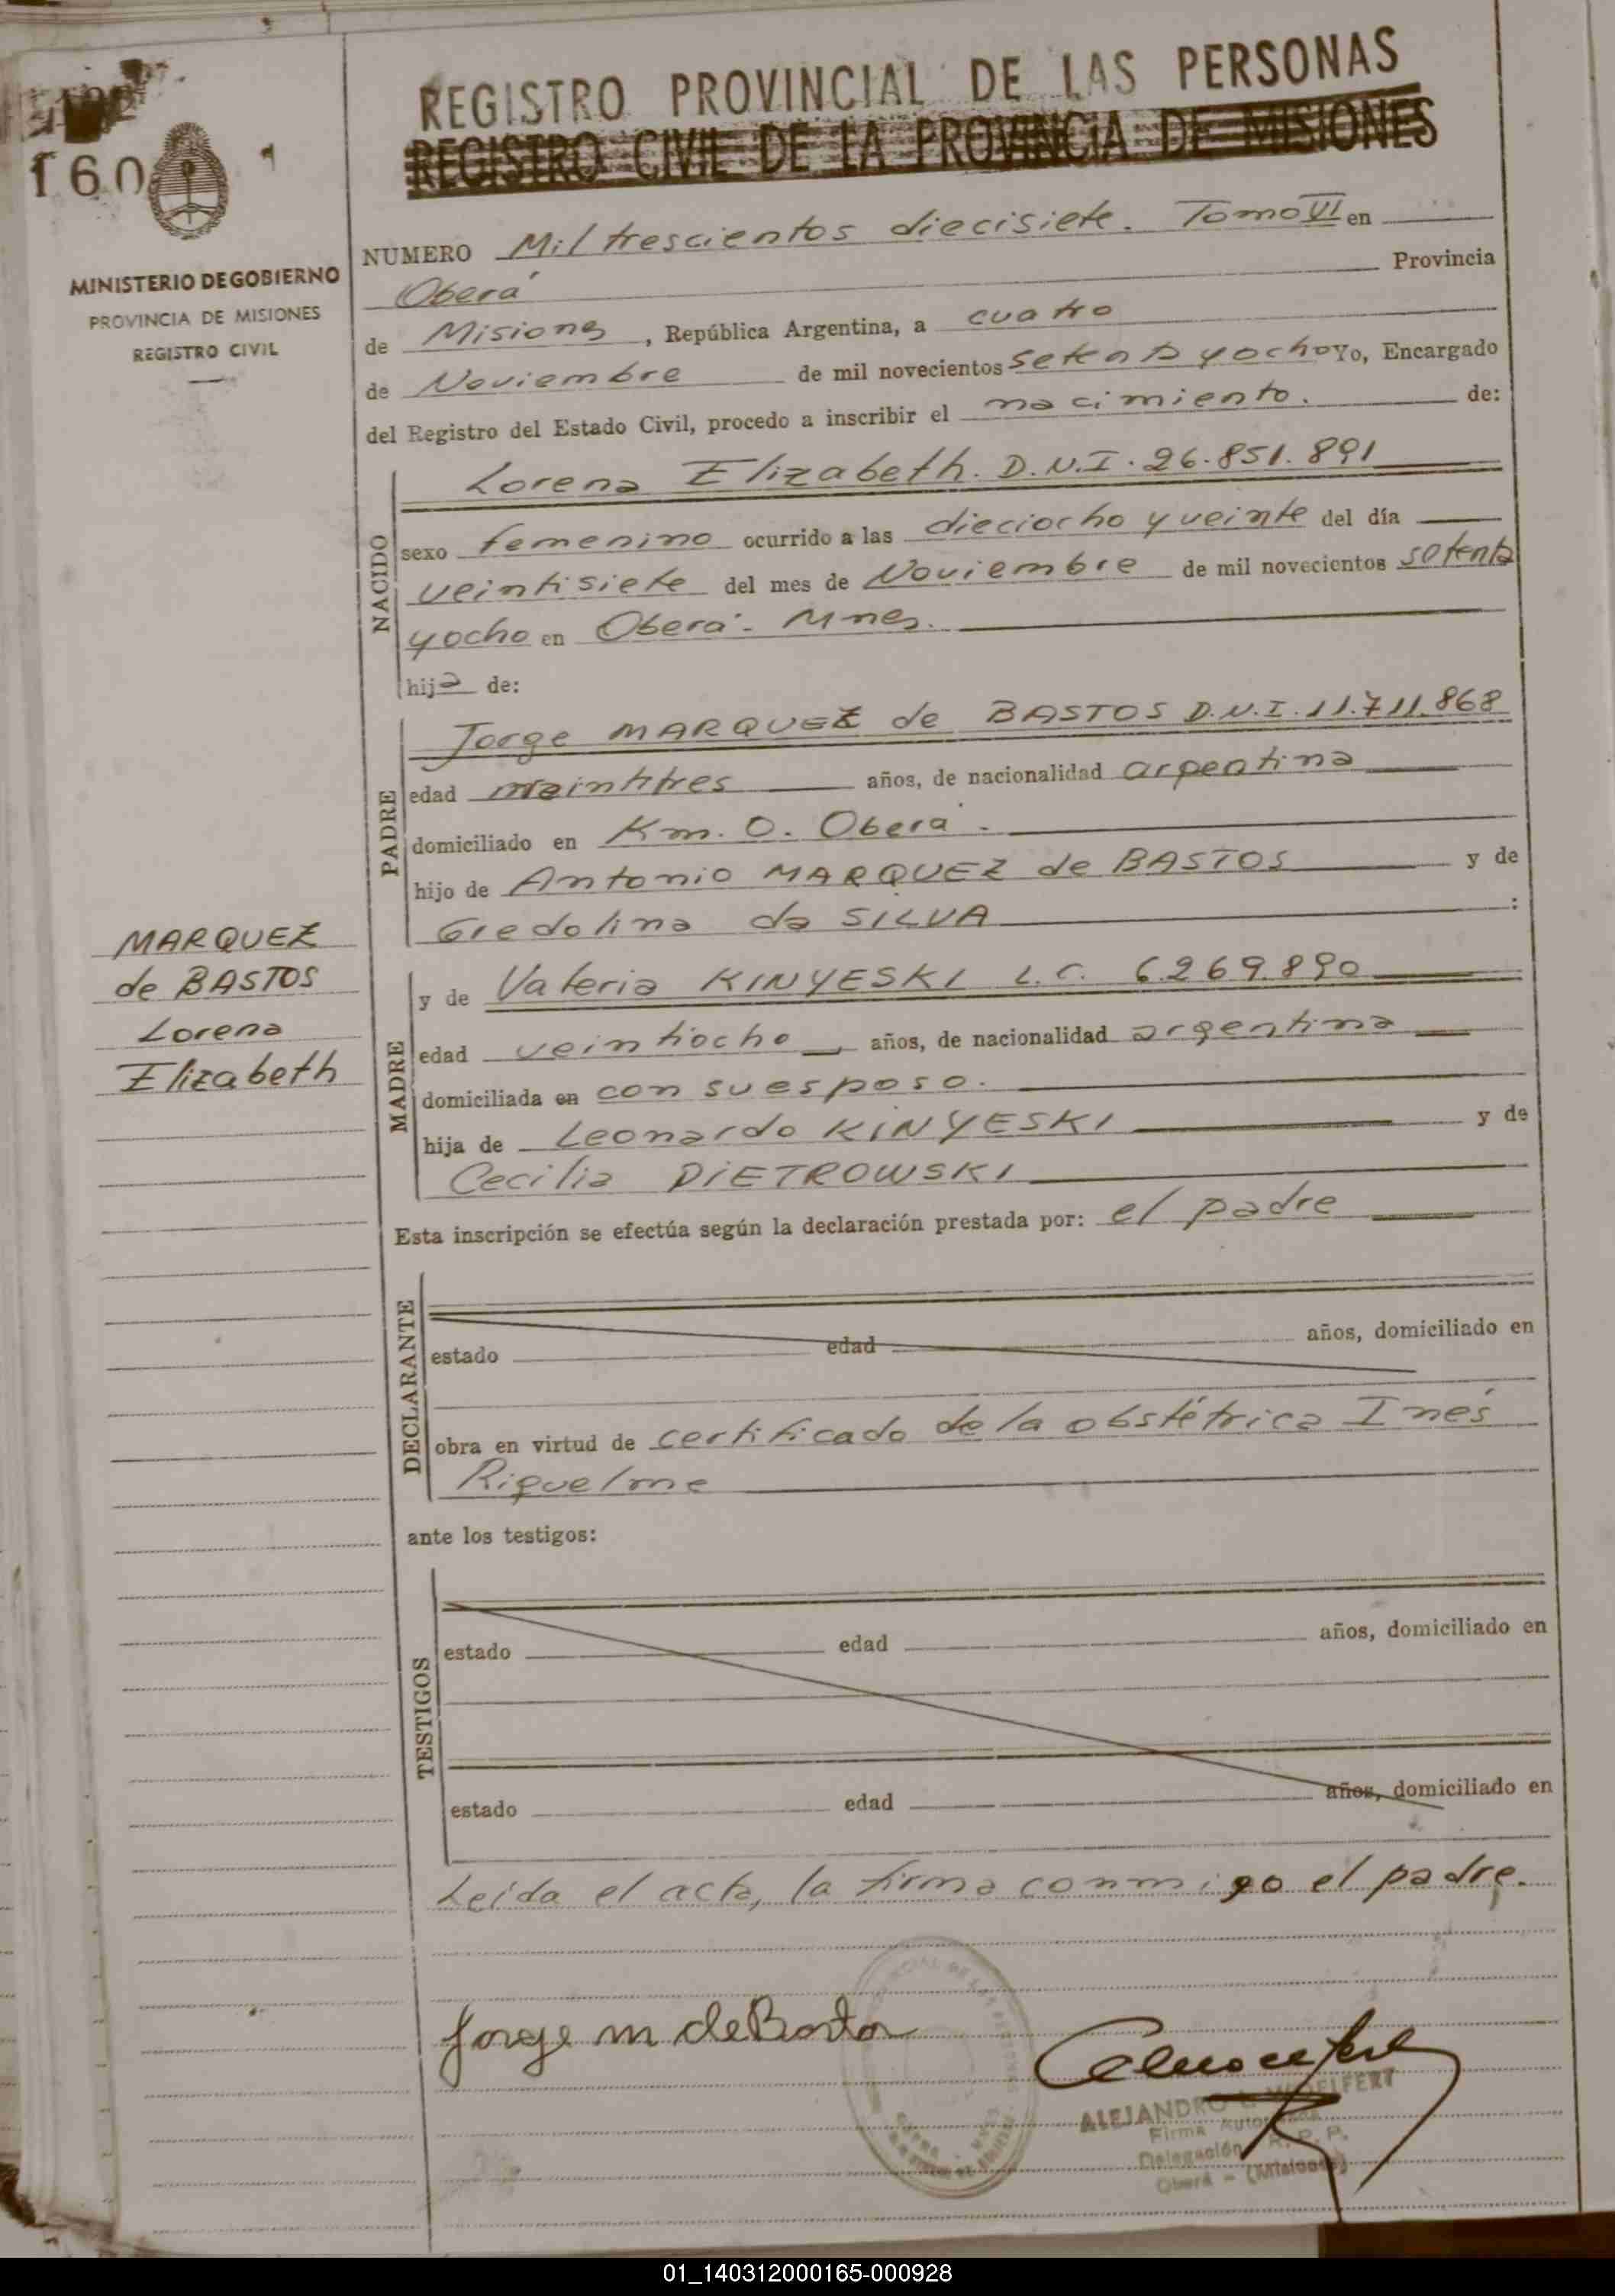 REGISTRO PROVINCIAL DE LAS PERSONAS
REGISTRO CIVIL DE LA PROVINCIA DE MISIONES
160
MINISTERIO DE GOBIERNO
PROVINCIA DE MISIONES
REGISTRO CIVIL
NUMERO Mil trescientos diecisiete. Tomo VI en
Oberá Provincia
de Misiones, República Argentina, a cuatro
de Noviembre de mil novecientos setenta y ocho Yo, Encargado
del Registro del Estado Civil, procedo a inscribir el nacimiento. de:
NACIDO
Lorena Elizabeth. D.N.I. 26.851.891
sexo femenino ocurrido a las dieciocho y veinte del día
veintisiete del mes de Noviembre de mil novecientos setenta
y ocho en Oberá - Mnes.
hija de:
PADRE
Jorge MARQUEZ de BASTOS D.N.I. 11.711.868
edad veintitres años, de nacionalidad argentina
domiciliado en Km. 0. Oberá.
hijo de Antonio MARQUEZ de BASTOS y de
Gredolina da SILVA :
MARQUEZ
de BASTOS
Lorena
Elizabeth
MADRE
y de Valeria KINYESKI L.C. 6.269.890
edad veintiocho, años, de nacionalidad argentina
domiciliada en con su esposo.
hija de Leonardo KINYESKI y de
Cecilia PIETROWSKI
Esta inscripción se efectúa según la declaración prestada por: el padre
DECLARANTE
estado edad años, domiciliado en
obra en virtud de certificado de la obstétrica Inés
Riquelme
ante los testigos:
TESTIGOS
estado edad años, domiciliado en
estado edad años, domiciliado en
Leída el acta, la firma conmigo el padre.
Jorge m de Bastos
ALEJANDRO
Firma
Delegación R. P. P.
Oberá - (Misiones)
01_140312000165-000928